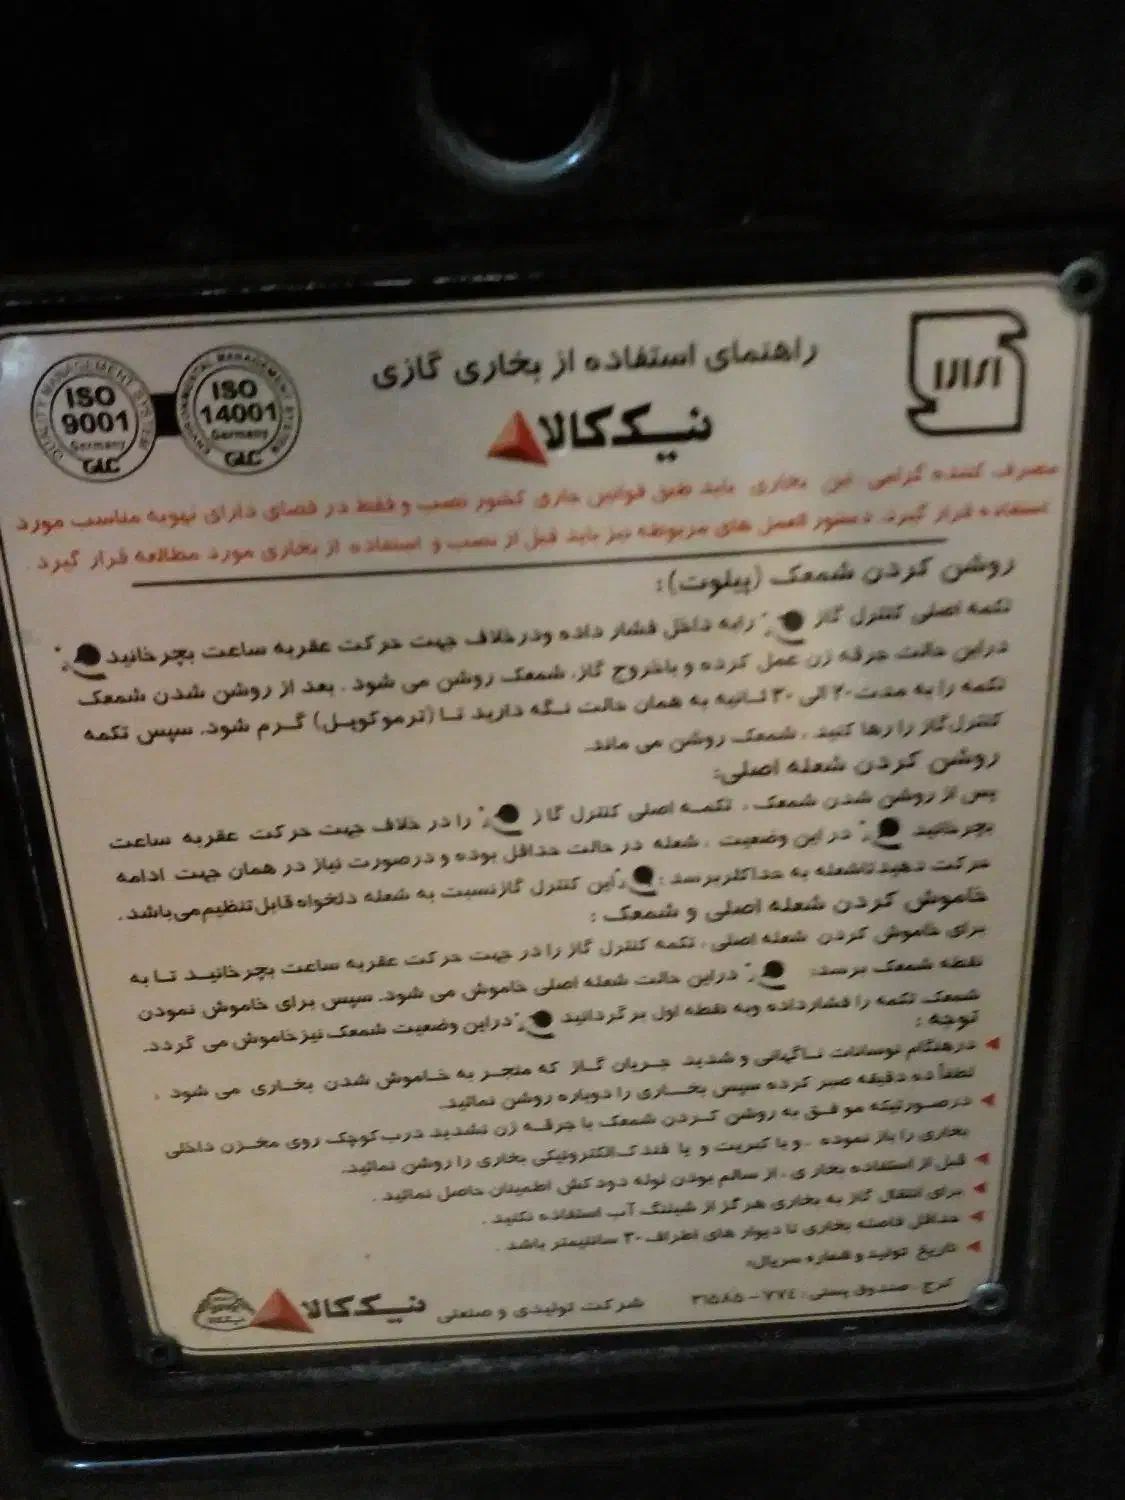 راهنمای استفاده از بخاری گازی
نیک کالا
ISO 9001
Germany
GLC
QUALITY MANAGEMENT SYSTEM
ISO 14001
Germany
GLC
ENVIRONMENTAL MANAGEMENT SYSTEM
مصرف کننده گرامی این بخاری باید طبق قوانین جاری کشور نصب و فقط در فضای دارای تهویه مناسب مورد
استفاده قرار گیرد. دستور العمل های مربوطه نیز باید قبل از نصب و استفاده از بخاری مورد مطالعه قرار گیرد.
روشن کردن شمعک (پیلوت):
تکمه اصلی کنترل گاز را به داخل فشار داده ودرخلاف جهت حرکت عقربه ساعت بچرخانید
دراین حالت جرقه زن عمل کرده و باخروج گاز، شمعک روشن می شود. بعد از روشن شدن شمعک
تکمه را به مدت ۲۰ الی ۳۰ ثانیه به همان حالت نگه دارید تا (ترموکوپل) گرم شود. سپس تکمه
کنترل گاز را رها کنید. شمعک روشن می ماند.
روشن کردن شعله اصلی:
پس از روشن شدن شمعک، تکمه اصلی کنترل گاز را در خلاف جهت حرکت عقربه ساعت
بچرخانید در این وضعیت، شعله در حالت حداقل بوده و درصورت نیاز در همان جهت ادامه
حرکت دهید تاشعله به حداکثر برسد: این کنترل گاز نسبت به شعله دلخواه قابل تنظیم می باشد.
خاموش کردن شعله اصلی و شمعک:
برای خاموش کردن شعله اصلی، تکمه کنترل گاز را در جهت حرکت عقربه ساعت بچرخانید تا به
نقطه شمعک برسد: دراین حالت شعله اصلی خاموش می شود. سپس برای خاموش نمودن
شمعک تکمه را فشارداده وبه نقطه اول برگردانید دراین وضعیت شمعک نیز خاموش می گردد.
توجه:
درهنگام نوسانات ناگهانی و شدید جریان گاز که منجر به خاموش شدن بخاری می شود.
لطفاً ده دقیقه صبر کرده سپس بخاری را دوباره روشن نمائید.
درصورتیکه موفق به روشن کردن شمعک با جرقه زن نشدید درب کوچک روی مخزن داخلی
بخاری را باز نموده، و با کبریت و یا فندک الکترونیکی بخاری را روشن نمائید.
قبل از استفاده بخاری، از سالم بودن لوله دودکش اطمینان حاصل نمائید.
برای انتقال گاز به بخاری هرگز از شیلنگ آب استفاده نکنید.
حداقل فاصله بخاری تا دیوار های اطراف ۳۰ سانتیمتر باشد.
تاریخ تولید و شماره سریال:
کرج، صندوق پستی: ۷۷۴ - ۳۱۵۸۵ شرکت تولیدی و صنعتی نیک کالا